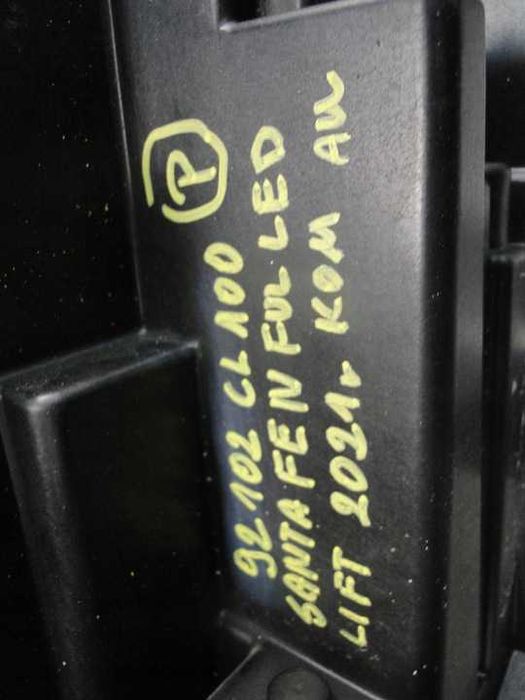 P
92102 CL100
SANTA FE IV FUL LED
LIFT 2021r KOM AW